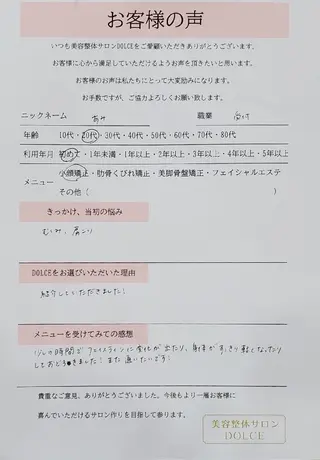 お客様の声
いつも美容整体サロンDOLCEをご愛顧いただきありがとうございます。
お客様に心から満足していただけるようお声を頂きたいと思います。
お客様のお声は私たちにとって大変励みになります。
お手数ですが、ご協力よろしくお願い致します。
ニックネーム あみ 職業
年齢 10代・20代・30代・40代・50代・60代・70代・80代
利用年月 初めて・1年未満・1年以上・2年以上・3年以上・4年以上・5年以上
メニュー 小顔矯正・肋骨くびれ矯正・美脚骨盤矯正・フェイシャルエステ
その他( )
きっかけ、当初の悩み
むくみ、肩こり
DOLCEをお選びいただいた理由
紹介していただきました!
メニューを受けてみての感想
少しの時間でフェイスラインに変化が出たり、身体がすっきり軽くなったり
しておどろきました! また通いたいです!
貴重なご意見、ありがとうございました。今後もより一層お客様に
喜んでいただけるサロン作りを目指して参ります。
美容整体サロン
DOLCE